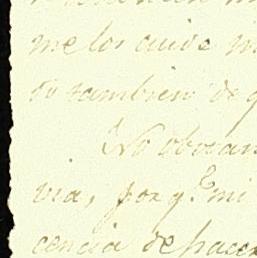 me los cuide
también de q
No obstan
via, por q.e mi
cencia de hacer